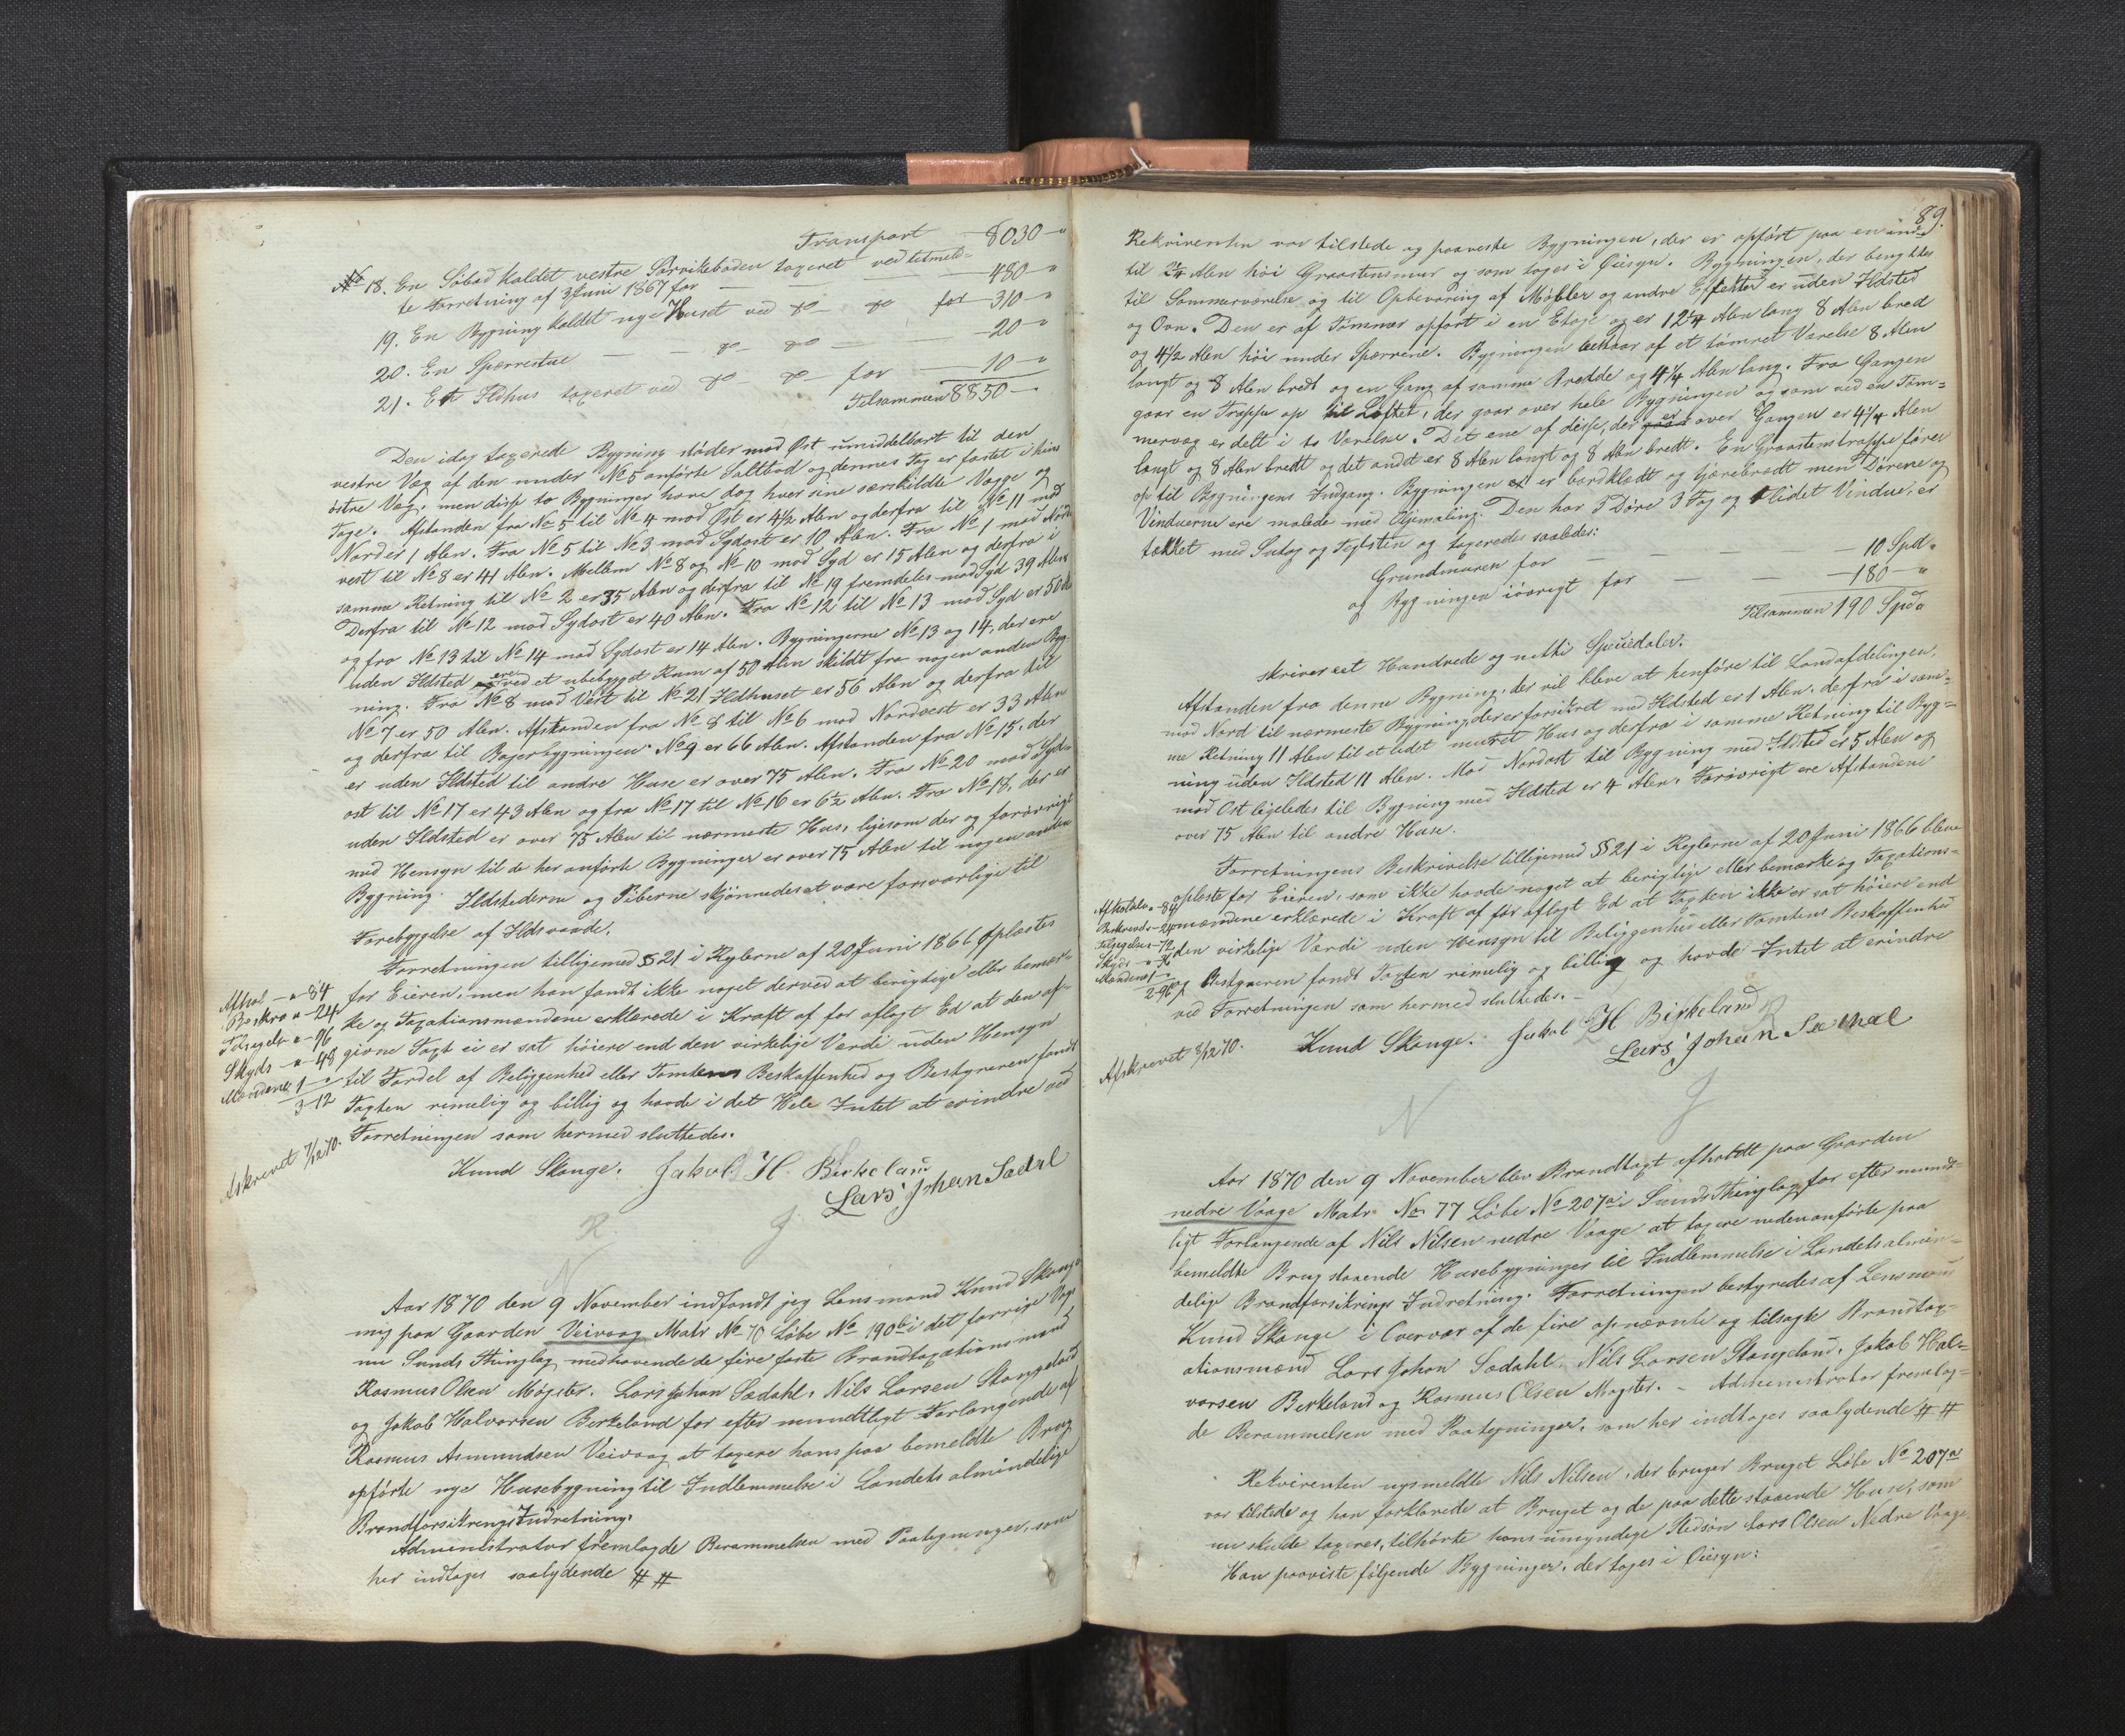 Transport — 8030 — "
No 18. En Söbod kaldet vestre Porvikeboden taxeret ved tilmeld=
te Forretning af 3 Juni 1867 for — 480 — "
19. En Bygning kaldet nye Huset ved do do for — 310 — "
20. En Sperrestue — do do — 20 — "
21. Et Ildhus taxeret ved do do for — 10 — "
Tilsammen 8850 —
Den idag taxerede Bygning stöder mod Öst umiddelbart til den
vestre Væg af den under No 5 anförte Saltbod og dennes Tag er fæstet i hiins
östre Væg, men disse to Bygninger have dog hver sine særskildte Vægge og
Tage. Afstanden fra No 5 til No 4 mod Öst er 4½ Alen og derfra til No 11 mod
Nord er 1 Alen. Fra No 5 til No 3 mod Sydost er 10 Alen. Fra No 1 mod Nord
vest til No 8 er 41 Alen. Mellem No 8 og No 10 mod Syd er 15 Alen og derfra i
samme Retning til No 2 er 35 Alen og derfra til No 19 fremdeles mod Syd 39 Alen
Derfra til No 12 mod Sydost er 40 Alen. Fra No 12 til No 13 mod Syd er 50 Al
og fra No 13 til No 14 mod Sydost er 14 Alen. Bygningerne No 13 og 14, der ere
uden Ildsted ere ved et ubebygget Rum af 50 Alen skildt fra nogen anden Byg-
ning. Fra No 8 mod Vest til No 21 Ildhuset er 56 Alen og derfra til
No 7 er 50 Alen. Afstanden fra No 8 til No 6 mod Nordvest er 33 Alen
og derfra til Bagerbygningen No 9 er 66 Alen. Afstanden fra No 15, der
er uden Ildsted til andre Huse er over 75 Alen. Fra No 20 mod Syd-
ost til No 17 er 43 Alen og fra No 17 til No 16 er 6½ Alen. Fra No 18, der er
uden Ildsted er over 75 Alen til nærmeste Hus, ligesom der og forövrigt
med Hensyn til de her anförte Bygninger er over 75 Alen til nogen anden
Bygning. Ildstederne og Piberne skjönnedes at være forsvarlige til
Forebyggelse af Ildsvaade.
Forretningen tilligemed § 21 i Reglerne af 20 Juni 1866 oplæstes
for Eieren, men han fandt ikke noget derved at berigtige eller bemær-
ke og Taxationsmændene erklærede i Kraft af för aflagt Ed at den af-
givne Taxt ei er sat höiere end den virkelige Værdi uden Hensyn
til Fordel af Beliggenhed eller Tomtens Beskaffenhed og Bestyreren fandt
Taxten rimelig og billig og havde i det Hele Intet at erindre ved
Forretningen som hermed sluttedes.
Afhol — " — 84
Beskr " — 24
Tilsigels " — 96
Skyds — " — 48
Mændene 1 — "
3 - 12
Afskrevet 7/12 70.
Knud Skange. Jakob H. Birkeland
Lars Johan Sædal
Aar 1870 den 9 November indfandt jeg Lensmand Knud Skange
mig paa Gaarden Veivaag Matr No 70 Löbe No 190b i det forrige Vags
nu Sunds Thinglag medhavende de fire faste Brandtaxationsmænd
Rasmus Olsen Møgster, Lars Johan Sædahl, Nils Larsen Stangeland
og Jakob Halvorsen Birkeland for efter mundtligt Forlangende af
Rasmus Asmundsen Veivaag at taxere hans paa bemeldte Brug
opförte nye Husebygning til Indlemmelse i Landets almindelige
BrandforsikringsIndretning.
Administrator fremlagde Berammelsen med Paategninger, som
her indtages saalydende # #
89.
Rekvirenten var tilstede og paaviste Bygningen, der er opfört paa en indtil
til 2¼ Alen höi Graastensmur og som toges i Öiesyn. Bygningen, der benyttes
til Sommerværelse og til Opbevaring af Møbler og andre Effekter er uden Ildsted
og Ovn. Den er af Tömmer opfört i en Etage og er 12¼ Alen lang 8 Alen bred
og 4½ Alen höi under Sperrene. Bygningen bestaar af et tömret Værelse 8 Alen
langt og 8 Alen bredt og en Gang af samme Bredde og 4¼ Alen lang. Fra Gangen
gaar en Trappe op til Loftet, der gaar over hele Bygningen og som ved en Töm=
mervæg er delt i to Værelse. Det ene af disse, der er over Gangen er 4¼ Alen
langt og 8 Alen bredt og det andet er 8 Alen langt og 8 Alen bredt. En Graastenstrappe förer
op til Bygningens Indgang. Bygningen er bordklædt og tjærebredt men Dörene og
Vinduerne ere malede med Oljemaling. Den har 5 Döre 3 Fag og 1 lidet Vindue, er
tækket med Sutag og Teglsten og taxeredes saaledes:
Grundmuren for — 10 Spd.
og Bygningen iövrigt for — 180 — "
Tilsammen 190 Spd.
skriver eet Hundrede og nitti Speciedaler.
Afstanden fra denne Bygning, der vil blive at henföre til Landafdelingen,
mod Nord til nærmeste Bygning, der er forsikret med Ildsted er 1 Alen, derfra i sam=
me Retning 11 Alen til et lidet muret Hus og derfra i samme Retning til Byg=
ning uden Ildsted 11 Alen. Mod Nordost til Bygning med Ildsted er 5 Alen og
mod Ost ligeledes til Bygning med Ildsted er 4 Alen. Forövrigt ere Afstandene
over 75 Alen til andre Huse.
Forretningens Beskrivelse tilligemed § 21 i Reglerne af 20 Juni 1866 bleve
oplæste for Eieren, som ikke havde noget at berigtige eller bemærke og Taxations=
mændene erklærede i Kraft af för aflagt Ed at Taxten ikke er sat höiere end
den virkelige Værdi uden Hensyn til Beliggenhed eller Tomtens Beskaffenhed
og Bestyreren fandt Taxten rimelig og billig og havde Intet at erindre
ved Forretningen som hermed sluttedes. —
Afholdels " — 84
Beskrivels — 24
Tilsigelser — 72
Skyds — " — 36
Mændene 1 — "
2 - 96
Afskrevet 8/12 70.
Knud Skange. Jakob H Birkeland
Lars Johan Sædhal
Aar 1870 den 9 November blev Brandtaxt afholdt paa Gaarden
nedre Vaage Matr. No 77 Löbe No 207a i Sunds Thinglag for efter mundt=
ligt Forlangende af Nils Nilsen nedre Vaage at taxere nedenanförte paa
bemeldte Brug staaende Husebygninger til Indlemmelse i Landets almin=
delige Brandforsikrings Indretning. Forretningen bestyredes af Lensmand
Knud Skange i Overvær af de fire opnævnte og tilsagte Brandtax=
ationsmænd Lars Johan Sædahl, Nils Larsen Stangeland, Jakob Hal=
vorsen Birkeland og Rasmus Olsen Møgster. — Administrator fremlag=
de Berammelsen med Paategninger, som her indtages saalydende # #
Rekvirenten nysmeldte Nils Nilsen, der bruger Bruget Löbe No 207a
var tilstede og han forklarede at Bruget og de paa dette staaende Huse, som
nu skulde taxeres, tilhörte hans umyndige Stedsön Lars Olsen Nedre Vaage.
Han paaviste fölgende Bygninger, der toges i Öiesyn: